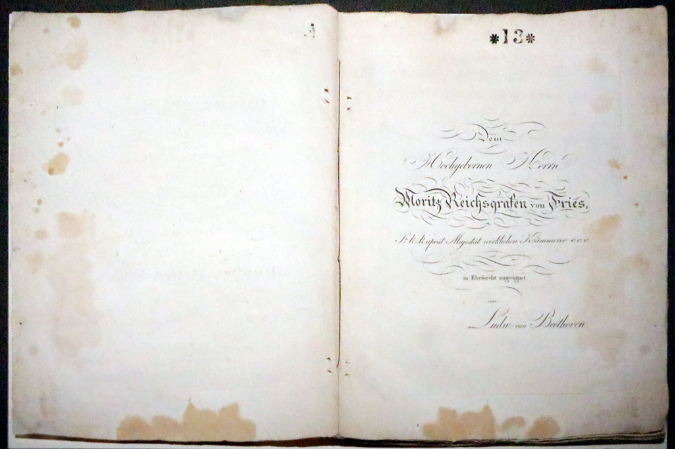 *13*
Dem
Hochgebornen Herrn
Moritz Reichsgrafen von Fries,
Sr. k. k. apost. Majestät wirklichen Kämmerer &c. &c. &c.
in Ehrfurcht zugeeignet
von
Ludw. van Beethoven